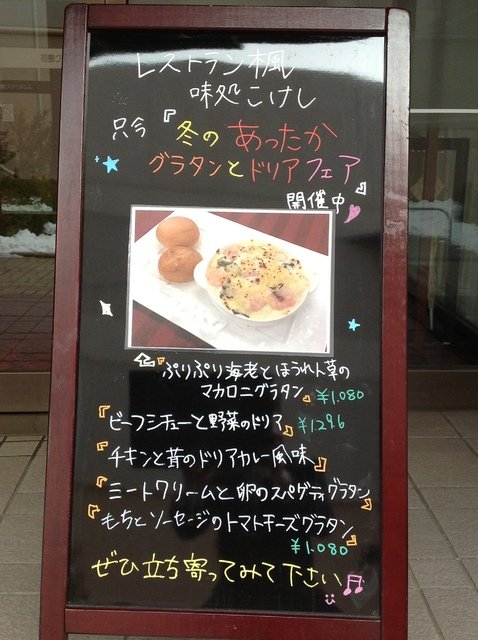 レストラン楓
味処こけし
只今『冬のあったか
グラタンとドリアフェア』
開催中
『ぷりぷり海老とほうれん草の
マカロニグラタン』 ¥1.080
『ビーフシチューと野菜のドリア』 ¥1296
『チキンと茸のドリアカレー風味』
『ミートクリームと卵のスパゲティグラタン』
『もちとソーセージのトマトチーズグラタン』
¥1.080
ぜひ立ち寄ってみて下さい♬